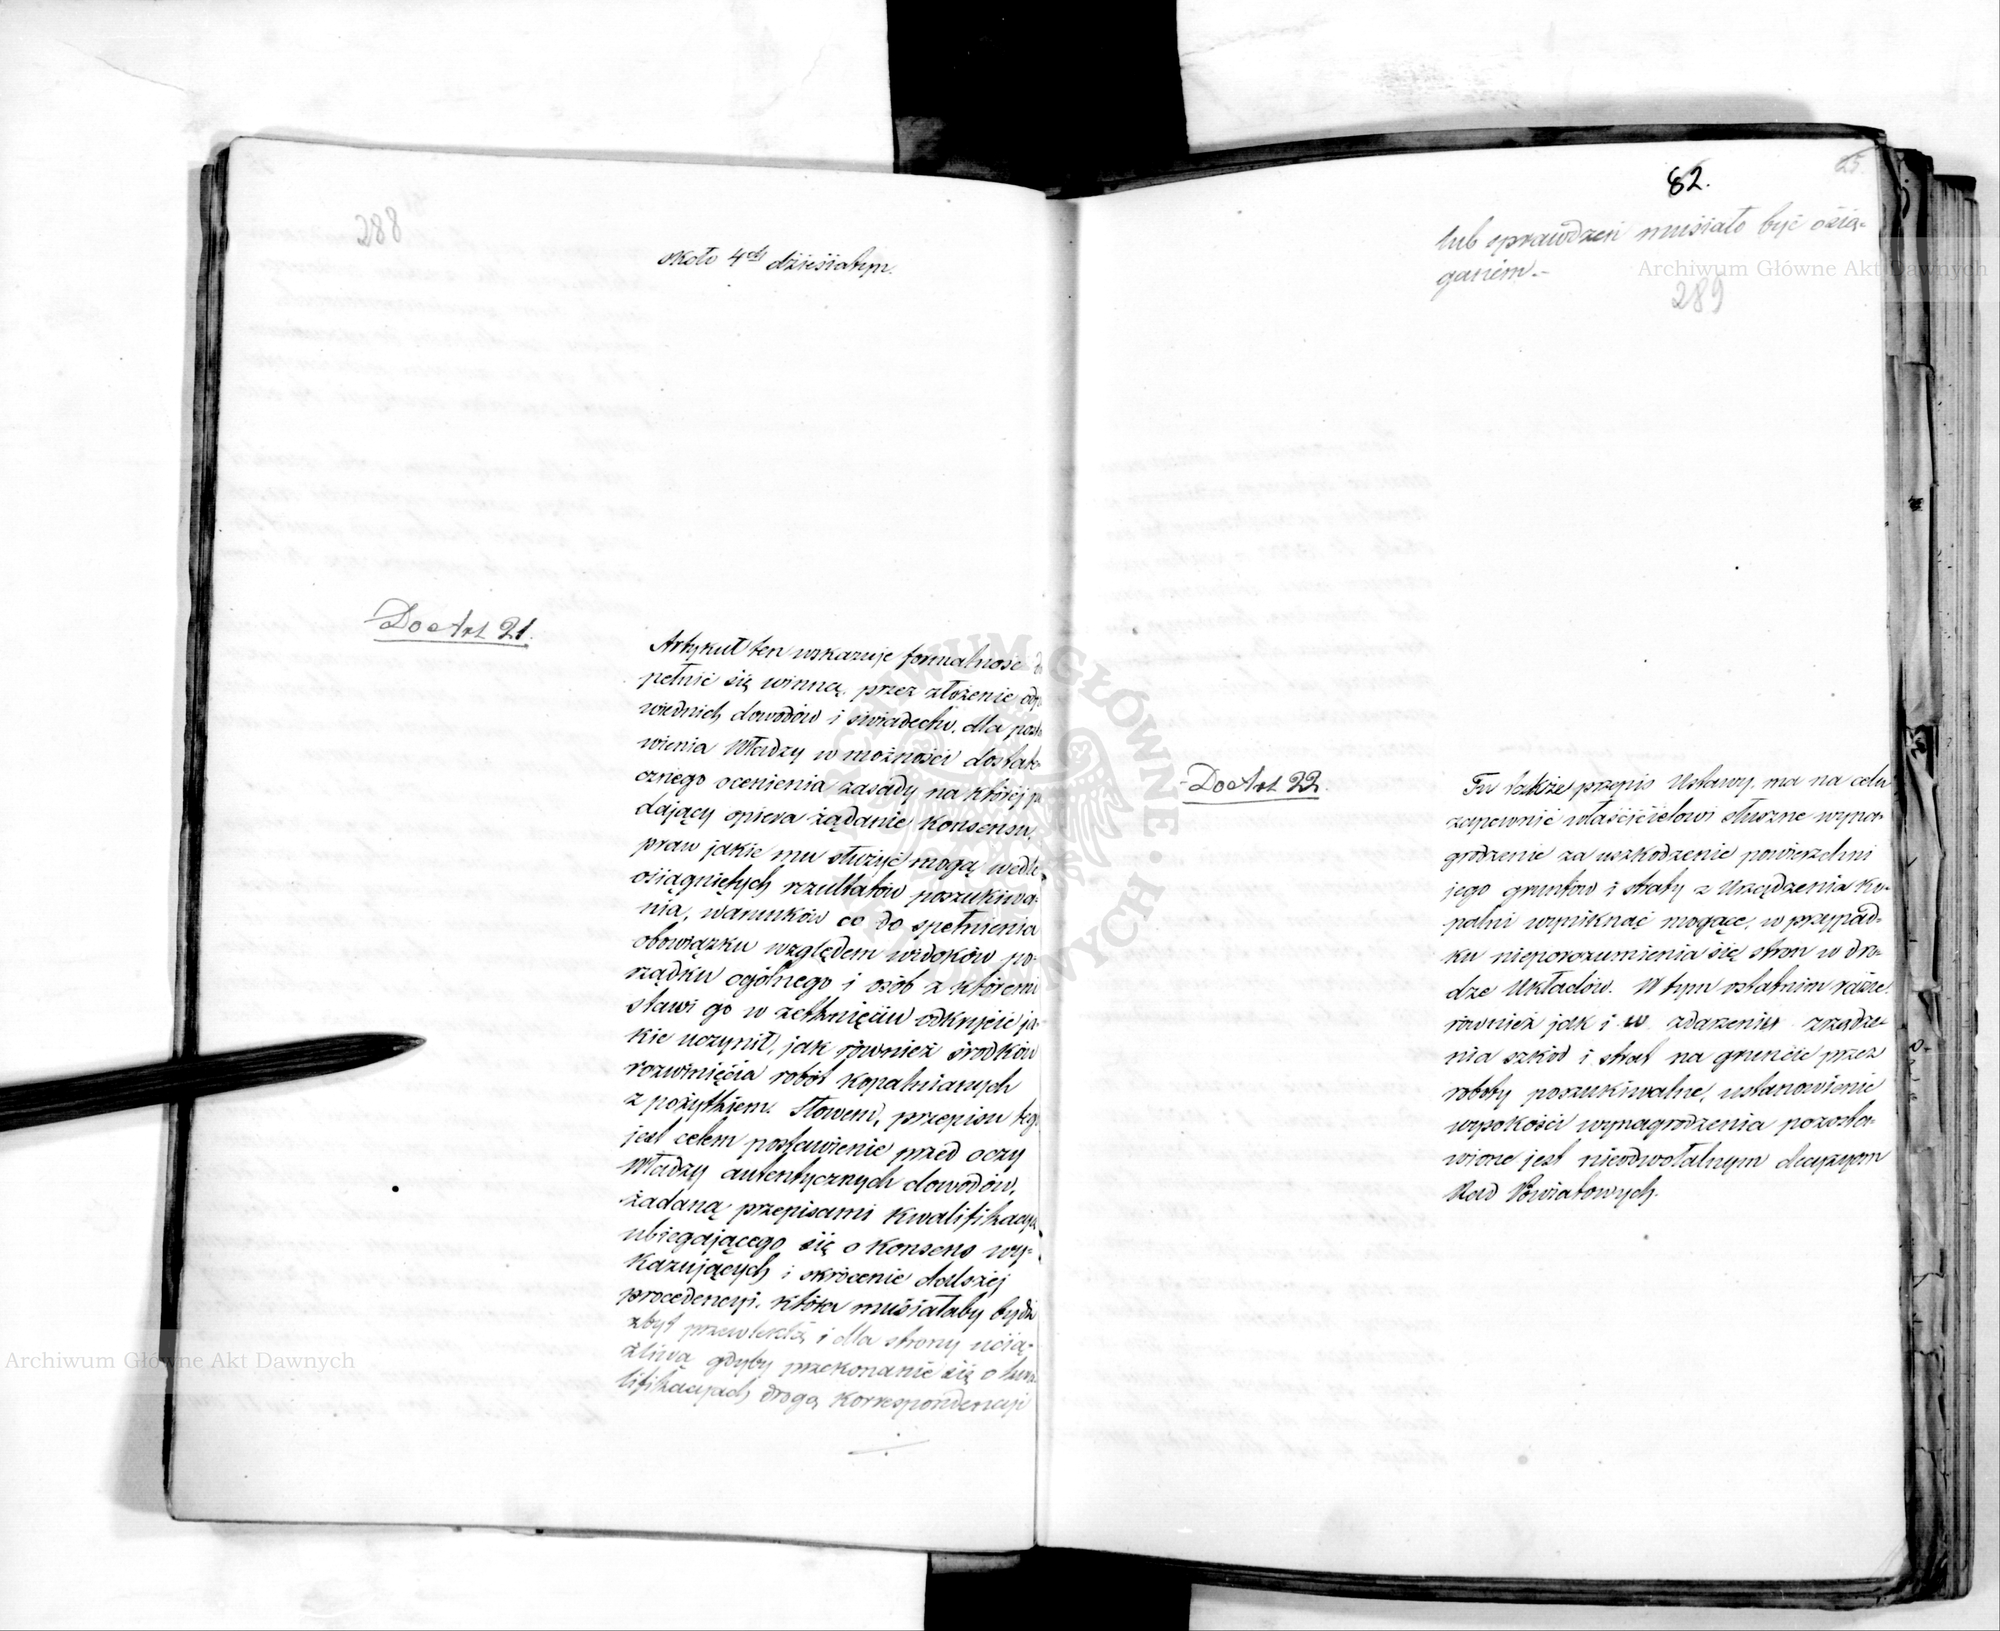 288
około 4ch dziesiątym.
Do Art 21.
Artykuł ten wskazuje formalność
pełnić się winną, przez złożenie odp
wiednich dowodów i świadectw, dla posta
wienia Władzy w możności dostate-
cznego ocenienia zasady na której
dający opiera żądanie Konsensu,
praw jakie mu służyć mogą wedle
osiągniętych rezultatów poszukiwa-
nia, warunków co do spełnienia
obowiązku względem widoków po-
rządku ogólnego i osób z któremi
stawi go w zetknięciu odkrycie ja-
kie uczynił, jak również środków
rozwinięcia robót kopalnianych
z pożytkiem. Słowem, przepisu tego
jest celem postawienie przed oczy
Władzy autentycznych dowodów,
żądaną przepisami Kwalifikacyą
ubiegającego się o Konsens wy-
kazujących i skrócenie dalszej
procedencyi, która musiałaby bydź
zbyt przewlekłą i dla strony ucią-
żliwą gdyby przekonanie się o kwa-
lifikacyach drogą Korrespondencyi
82.
25.
lub sprawdzeń musiało być osią-
ganém.-
289
Do Art 22.
Tu także przepis Ustawy, ma na celu
zapewnić właścicielowi słuszne wyna-
grodzenie za uszkodzenie powierzchni
jego gruntów i straty z Urządzenia Ko-
palni wyniknąć mogące, w przypad-
ku nieporozumienia się stron w dro-
dze Układów. W tym ostatnim razie
również jak i w zdarzeniu zrządze-
nia szkód i strat na gruncie przez
roboty poszukiwalne, ustanowienie
wysokości wynagrodzenia pozosta-
wione jest nieodwołalnym decyzyom
Rad Powiatowych.
Archiwum Główne Akt Dawnych
Archiwum Główne Akt Dawnych
ARCHIWUM GŁÓWNE AKT DAWNYCH